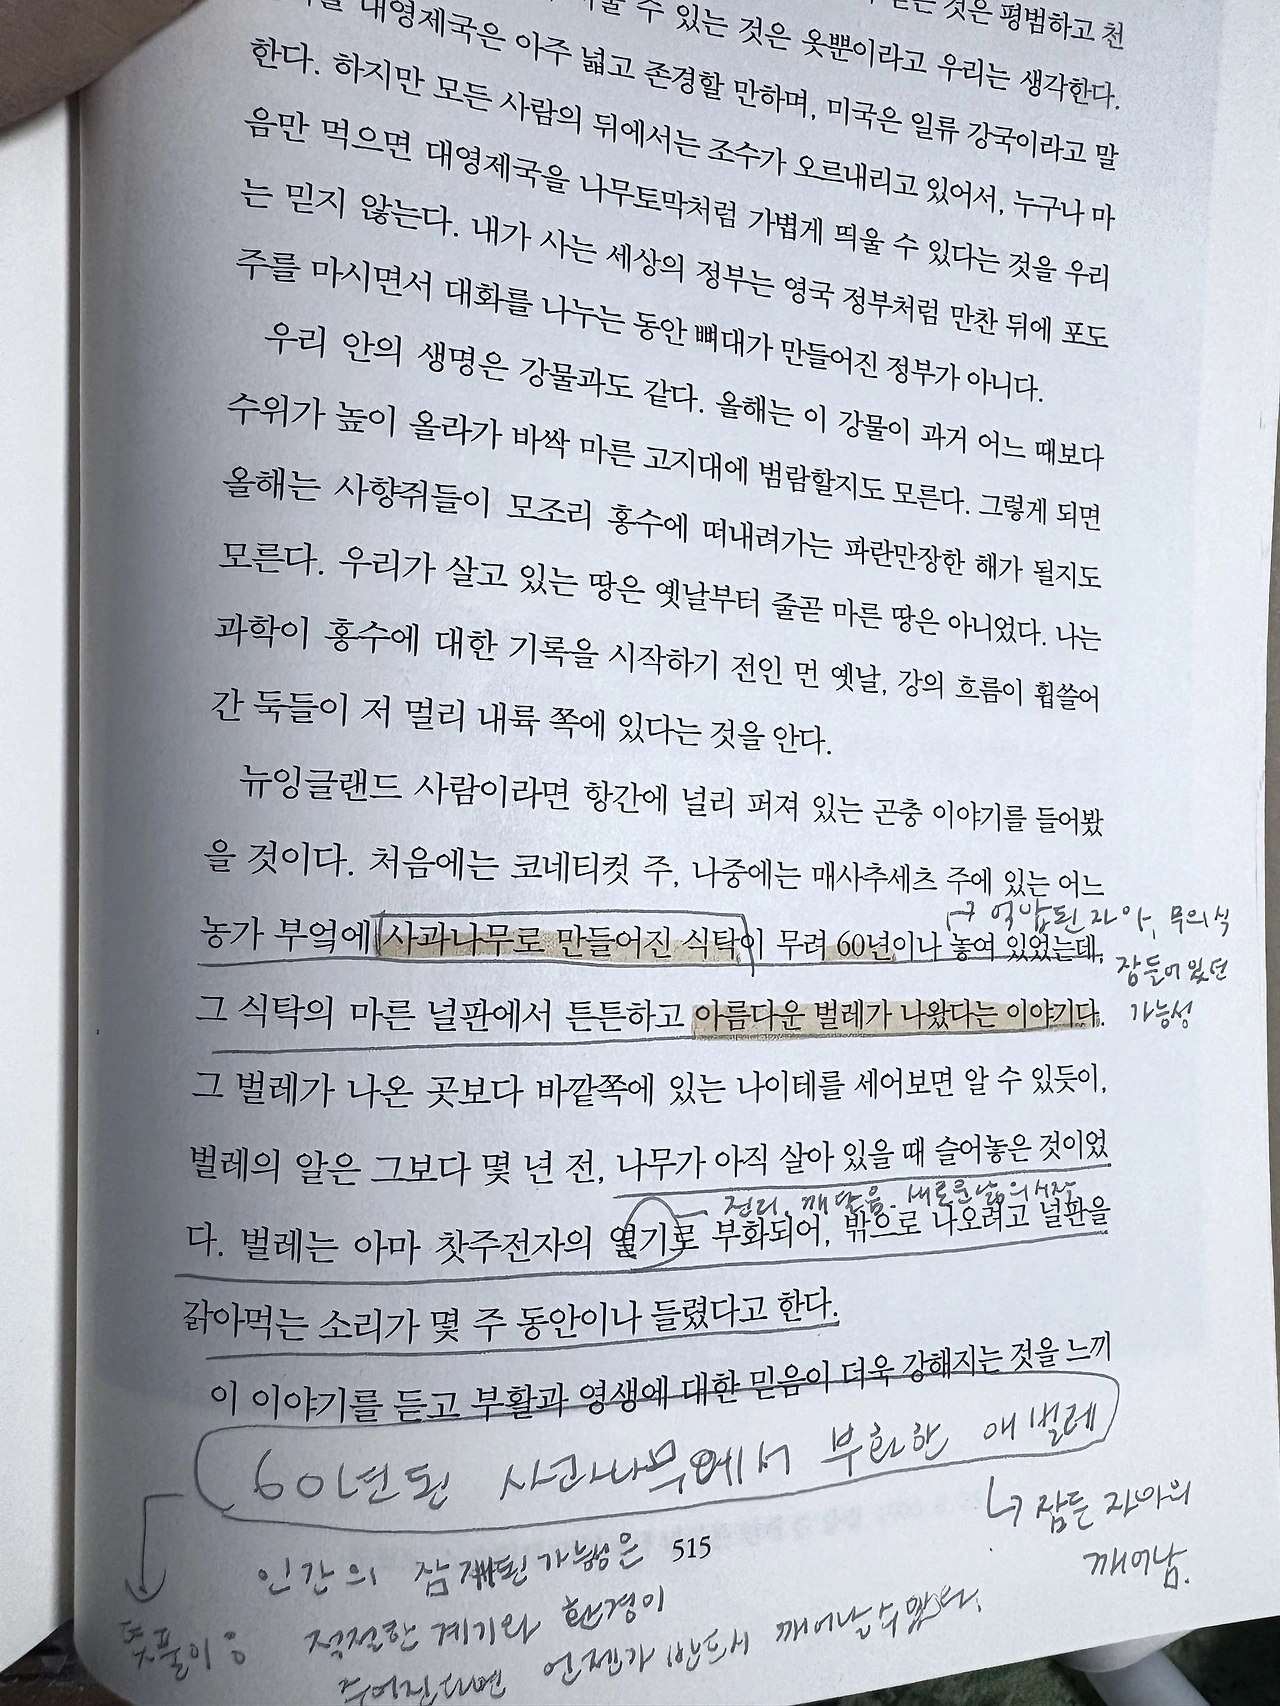 것은 평범하고 천
수 있는 것은 옷뿐이라고 우리는 생각한다.
대영제국은 아주 넓고 존경할 만하며, 미국은 일류 강국이라고 말
한다. 하지만 모든 사람의 뒤에서는 조수가 오르내리고 있어서, 누구나 마
음만 먹으면 대영제국을 나무토막처럼 가볍게 띄울 수 있다는 것을 우리
는 믿지 않는다. 내가 사는 세상의 정부는 영국 정부처럼 만찬 뒤에 포도
주를 마시면서 대화를 나누는 동안 뼈대가 만들어진 정부가 아니다.
우리 안의 생명은 강물과도 같다. 올해는 이 강물이 과거 어느 때보다
수위가 높이 올라가 바싹 마른 고지대에 범람할지도 모른다. 그렇게 되면
올해는 사향쥐들이 모조리 홍수에 떠내려가는 파란만장한 해가 될지도
모른다. 우리가 살고 있는 땅은 옛날부터 줄곧 마른 땅은 아니었다. 나는
과학이 홍수에 대한 기록을 시작하기 전인 먼 옛날, 강의 흐름이 휩쓸어
간 둑들이 저 멀리 내륙 쪽에 있다는 것을 안다.
뉴잉글랜드 사람이라면 항간에 널리 퍼져 있는 곤충 이야기를 들어봤
을 것이다. 처음에는 코네티컷 주, 나중에는 매사추세츠 주에 있는 어느
억압된 자아, 무의식
농가 부엌에 사과나무로 만들어진 식탁이 무려 60년이나 놓여 있었는데,
잠들어 있던
그 식탁의 마른 널판에서 튼튼하고 아름다운 벌레가 나왔다는 이야기다.
가능성
그 벌레가 나온 곳보다 바깥쪽에 있는 나이테를 세어보면 알 수 있듯이,
벌레의 알은 그보다 몇 년 전, 나무가 아직 살아 있을 때 슬어놓은 것이었
진리, 깨달음. 새로운 삶의 시작
다. 벌레는 아마 찻주전자의 열기로 부화되어, 밖으로 나오려고 널판을
갉아먹는 소리가 몇 주 동안이나 들렸다고 한다.
이 이야기를 듣고 부활과 영생에 대한 믿음이 더욱 강해지는 것을 느끼
60년된 사과나무에서 부화한 애벌레
잠든 자아의
깨어남.
515
인간의 잠재된 가능성은
적절한 계기와 환경이
주어진다면 언젠가 반드시 깨어날 수 있다.